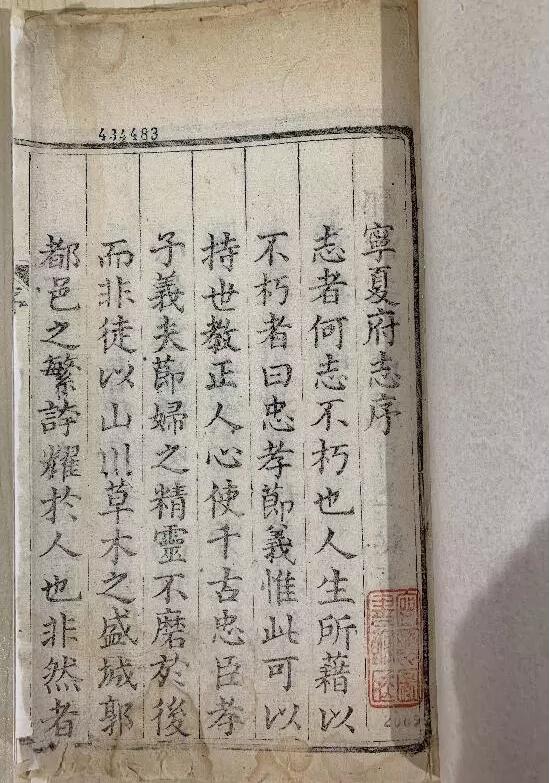 434483
寧夏府志序
志者何志不朽也人生所藉以
不朽者曰忠孝節義惟此可以
持世教正人心使千古忠臣孝
子義夫節婦之精靈不磨於後
而非徒以山川草木之盛城郭
都邑之繁誇耀於人也非然者